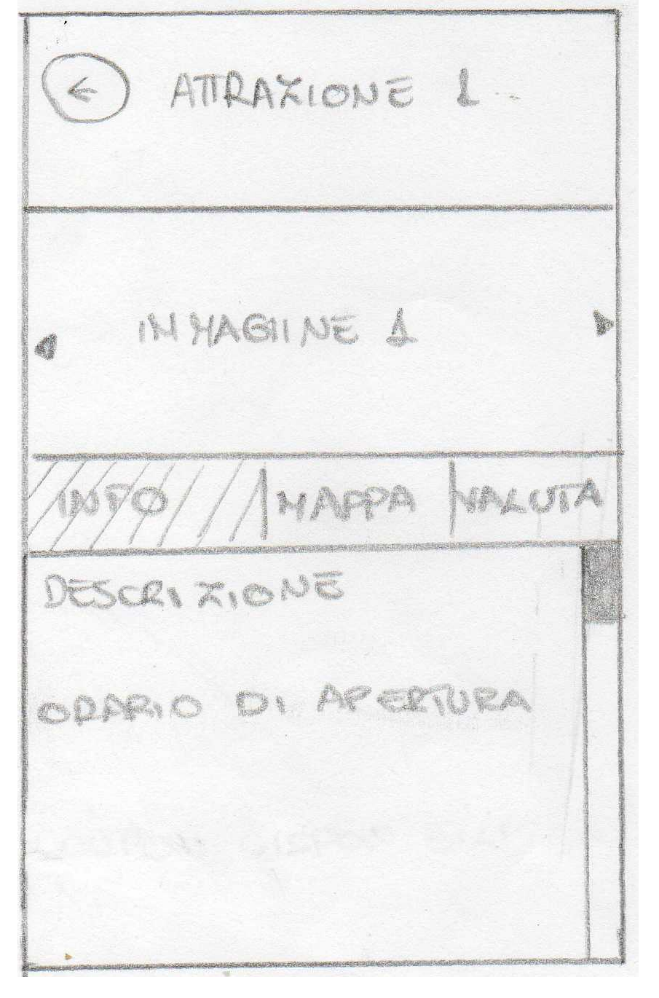 ATTRAZIONE 1
IMMAGIINE 1
INFO MAPPA VALUTA
DESCRIZIONE
ORARIO DI APERTURA